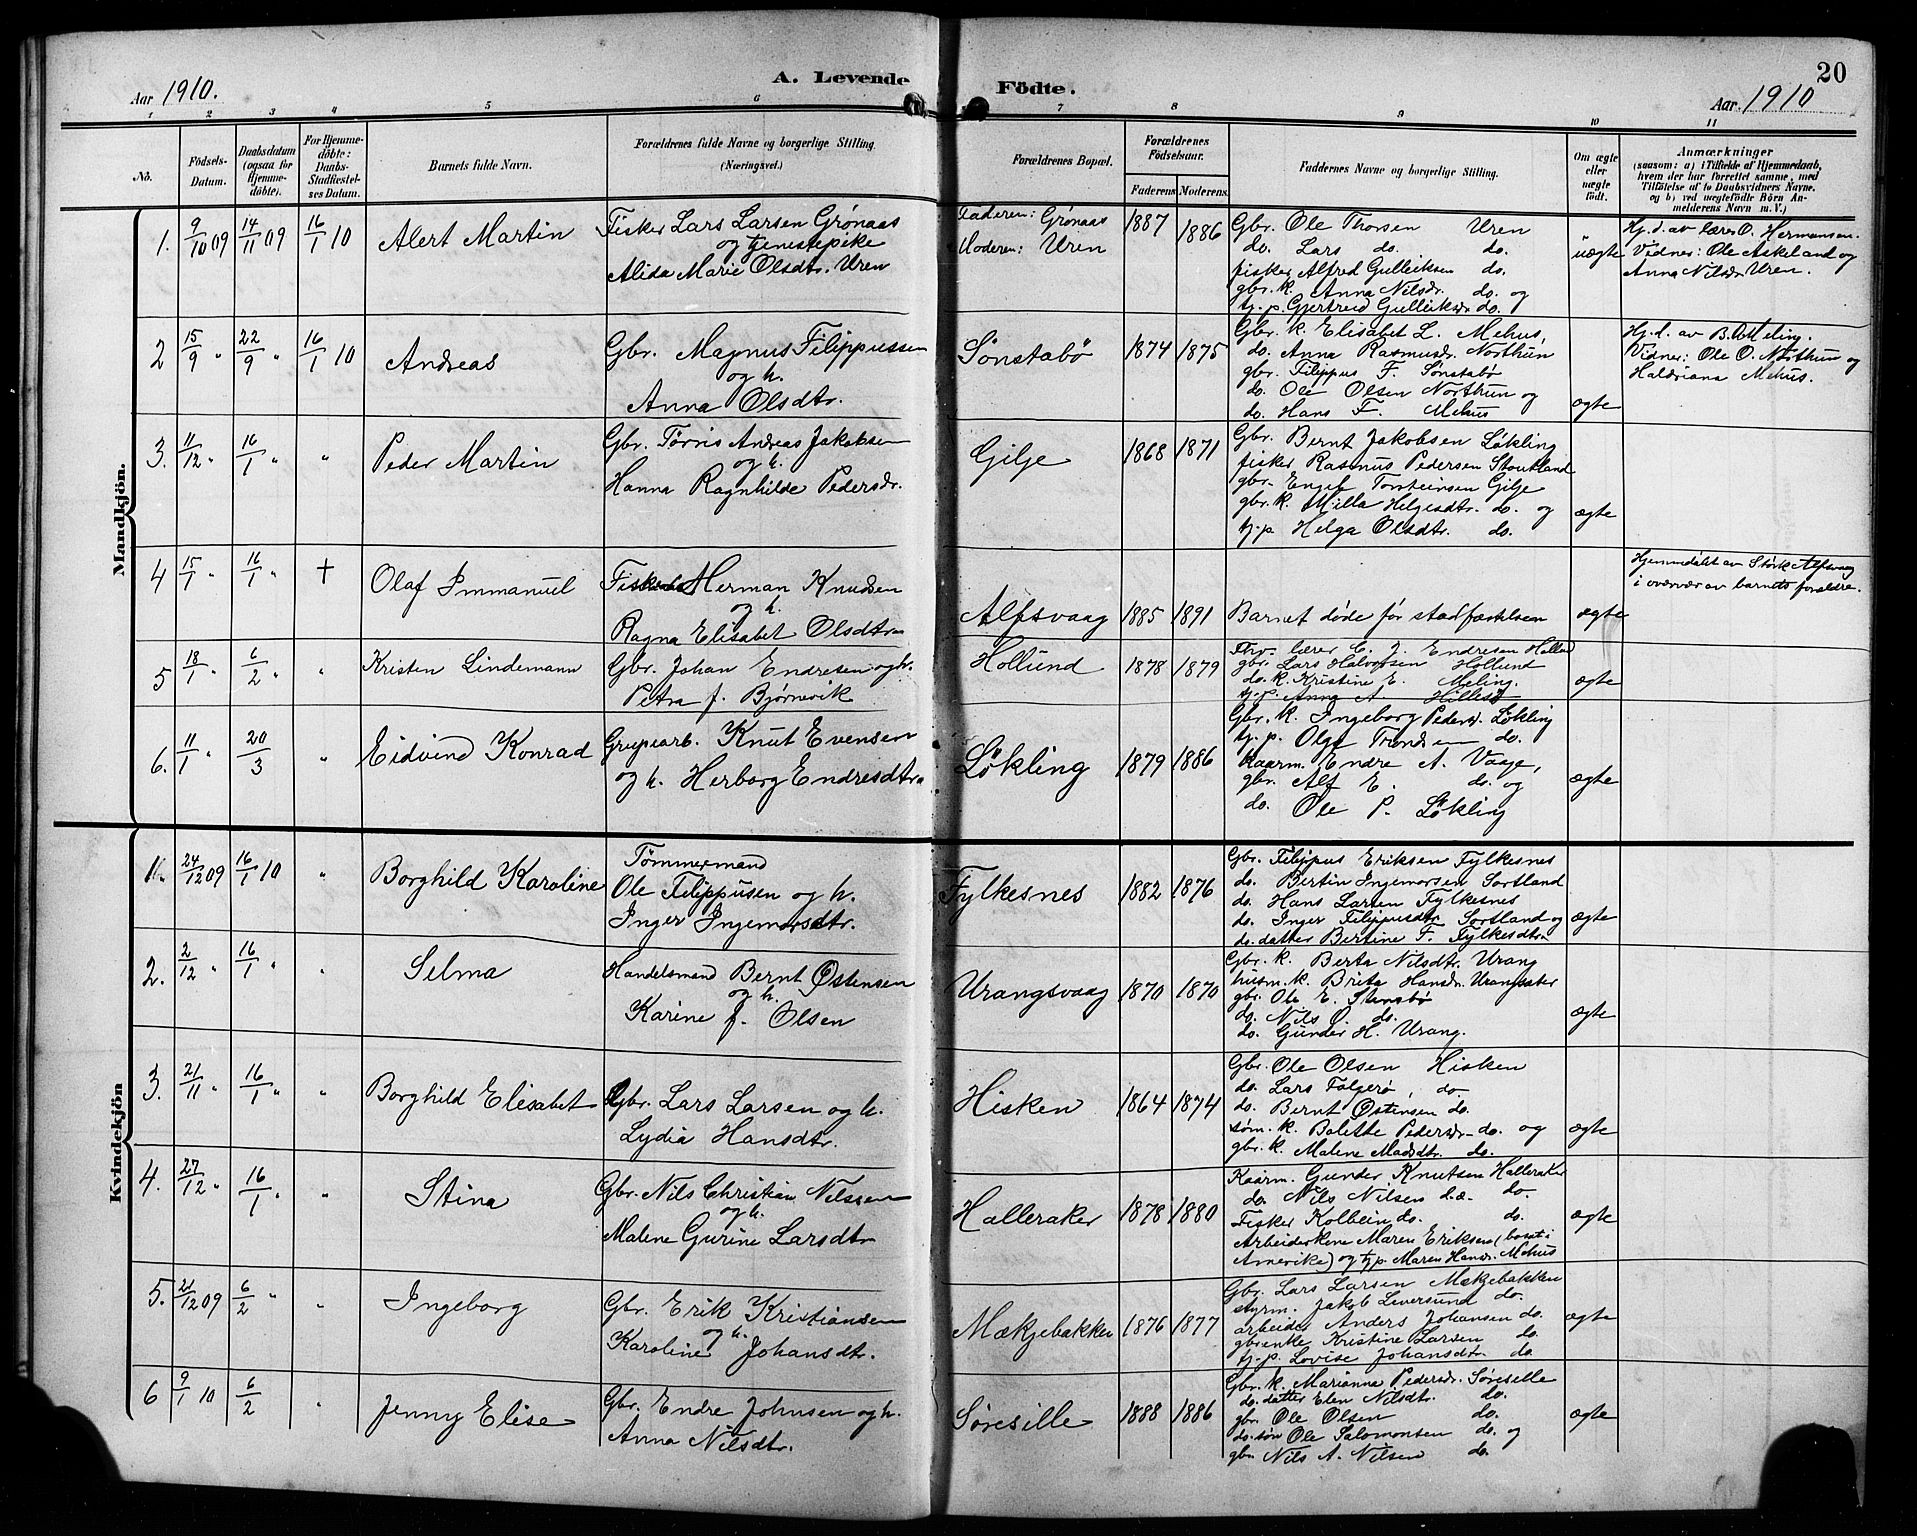 20
Aar 1910.
A. Levende Födte.
Aar. 1910
1 2 3 4 5 6 7 8 9 10 11
No.
Födsels-Datum.
Daabsdatum (ogsaa for Hjemme-döbte).
For Hjemme-döbte: Daabs-Stadfæstel-ses Datum.
Barnets fulde Navn.
Forældrenes fulde Navne og borgerlige Stilling. (Næringsvei.)
Forældrenes Bopæl.
Forældrenes Födselsaar.
Faderens. Moderens.
Faddernes Navne og borgerlige Stilling.
Om ægte eller uægte födt.
Anmærkninger
(saasom: a) i Tilfælde af Hjemmedaab,
hvem der har forrettet samme, med
Tilföielse af to Daabsvidners Navne.
og b) ved uægtefödte Börn An-
melderens Navn m. V.)
Mandkjön.
1. 9/10 09 14/11 09 16/1 10 Alert Martin
Fisker Lars Larsen Grønaas
og tjenestepike
Alida Marie Olsdtr. Uren
Faderen: Grønaas
Moderen: Uren
1887 1886
Gbr. Ole Thorsen Uren
do. Lars do. do.
fisker Alfred Gulleiksen do.
gbr. k. Anna Nilsdr. do. og
tj.p. Gjertreid Gulleiksdr. do.
uægte
Hj.d. av lærer O. Hermansen.
Vidner: Ole Askeland og
Anna Nilsdr. Uren.
2 15/9 " 22/9 " 16/1 10 Andreas
Gbr. Magnus Filippussen
og h.
Anna Olsdtr.
Sønstabø 1874 1875
Gbr. k. Elisabet L. Mehus,
do. Anna Rasmusdr. Northun
gbr. Filippus F. Sønstabø
do. Ole Olsen Northun og
do. Hans F. Mehus
ægte
Hj.d. av B. O. Meling.
Vidner: Ole O. Northun og
Haldriana Mehus.
3. 11/12 " 16/1 " " Peder Martin
Gbr. Tørris Andreas Jakobsen
og h.
Hanna Ragnhilde Pedersdr.
Gilje 1868 1871
Gbr. Bernt Jakobsen Løkling
fisker Rasmus Pedersen Stoutland
gbr. Engel Torsteinsen Gilje
gbr. k. Milla Helgesdtr. do. og
tj.p. Helga Olsdtr. do.
ægte
4 15/1 " 16/1 " + Olaf Immanuel
Fisker Herman Knudsen
og h.
Ragna Elisabet Olsdtr.
Alfsvaag 1885 1891 Barnet døde før stadfæstelsen ægte
Hjemmedøbt av Størk Alfsvaag
i overvær av barnets forældre.
5 18/1 " 6/2 " " Kristen Lindemann
Gbr. Johan Endresen og h.
Petra f. Bjørnevik
Hollund 1878 1879
lærer C. J. Endresen Hollund
gbr. Lars Halvorsen Hollund
do. k. Kristine E. Meling.
tj.p. Anna A. Hillestv
ægte
6. 11/1 " 20/3 " Eidvind Konrad
Grupearb. Knut Evensen
og h. Herborg Endresdtr.
Løkling 1879 1886
Gbr. k. Ingeborg Pedersd. Løkling
tj.p. Olga Trondsen do.
Kaarm. Endre A. Vaage,
gbr. Alf E. do. og
do. Ole P. Løkling
ægte
Kvindekjön
1. 24/12 09 16/1 10 " Borghild Karoline
Tømmermand
Ole Filippusen og h.
Inger Ingemarsdtr.
Fylkesnes 1882 1876
Gbr. Filippus Eriksen Fylkesnes
do. Bertin Ingemarsen Sortland
do. Hans Larsen Fylkesnes
do. Inger Filippusdtr. Sortland og
do. datter Bertine F. Fylkesdtr.
ægte
2. 2/12 " 16/1 " " Selma
Handelsmand Bernt Østensen
og h.
Karine f. Olsen
Urangsvaag 1870 1870
Gbr. k. Berta Nilsdtr. Urang
husm. k. Brita Hansdr. Urangsæter
gbr. Ole E. Stensbø
do. Nils O. do.
do. Gunder H. Urang.
ægte
3. 21/11 " 16/1 " " Borghild Elisabet
Gbr. Lars Larsen og h.
Lydia Hansdtr.
Hisken 1864 1874
Gbr. Ole Olsen Hisken
do. Lars Folgerø, do.
do. Bernt Østensen do.
søm. k. Bolette Pedersdr. do. og
gbr. k. Malene Madsdtr. do.
ægte
4. 27/12 " 16/1 " " Stina
Gbr. Nils Christian Nilssen
og h.
Malene Gurine Larsdtr.
Halleraker 1878 1880
Kaarm. Gunder Knutsen Halleraker
do. Nils Nilsen d.æ. do.
Fisker Kolbein do. do.
Arbeiderkone Maren Eriksen (bosat i
Amerika) og tj.p. Maren Hansdr. Mehus
ægte
5. 21/12 09 6/2 " " Ingeborg
Gbr. Erik Kristiansen
og h.
Karoline Johansdtr.
Mækjebakken 1876 1877
Gbr. Lars Larsen Mækjebakken
styrm. Jakob Leversund do.
arbeider Anders Johansen do.
gbr.enke Kristine Larsen do.
tj.p. Lovise Johansdtr. do.
ægte
6 9/1 10 6/2 " Jenny Elise
Gbr. Endre Johnsen og h.
Anna Nilsdtr.
Søresille 1888 1886
Gbr. k. Marianna Pedersdr. Søresille
do. datter Elen Nilsdtr. do.
gbr. Ole Olsen do.
do. søn Ole Salomonsen do. og
gbr. Nils A. Nilsen do.
ægte